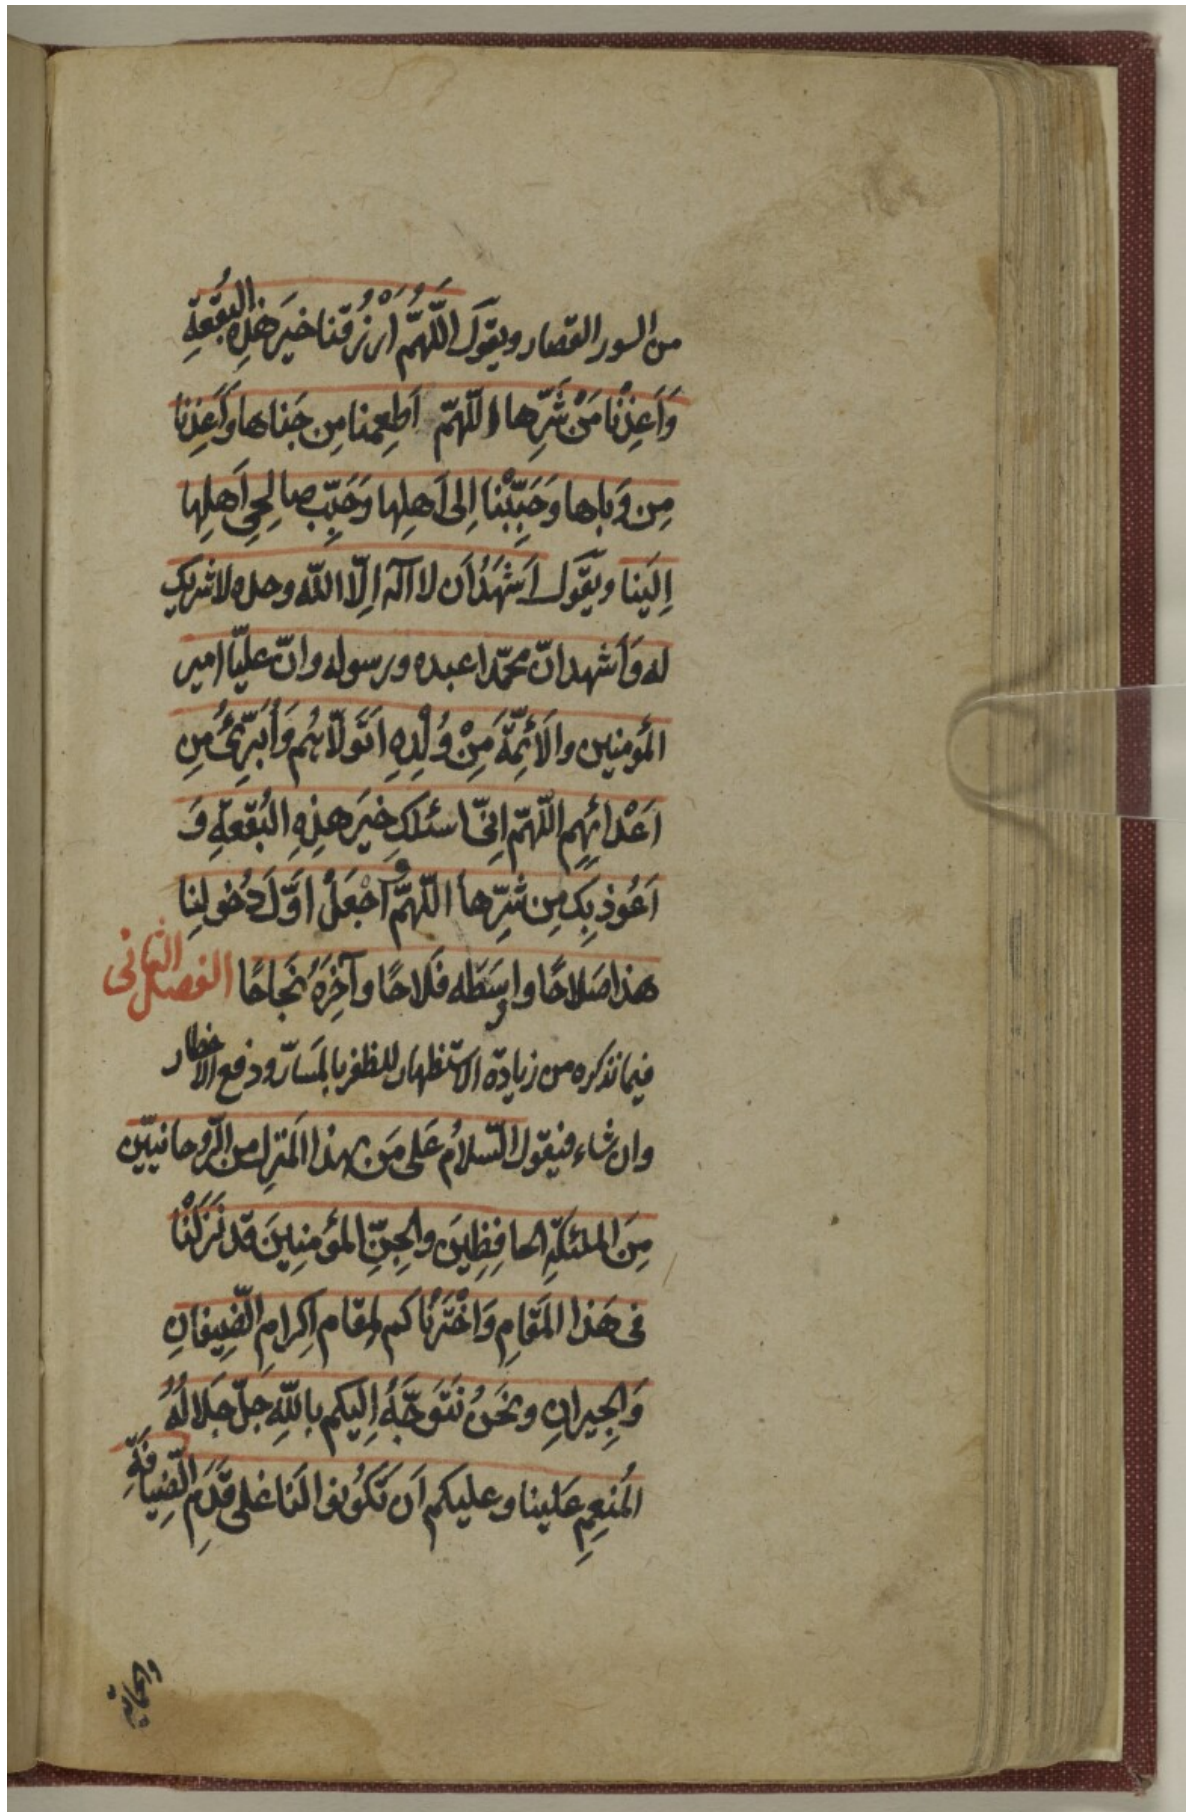 من السور القصار ويقول اَللّهُمَّ ارْزُقنا خَيرَ هٰذِهِ البُقعَةِ
وَاَعِذْنا مَنْ شَرِّها اللّهمّ اَطعِمنا مِن جَناها وَاَعِذنا
مِن وَباها وَحَبِّبْنا اِلى اَهلِها وَحَبِّب صالِحِي اَهلِها
اِلَينا ويقول اَشهَدُ اَن لا اله اِلّا اللّه وحده لا شريك
له وَاَشهد انّ محمّدا عبده ورسوله وانّ عليّا امير
المؤمنين والاَئِمَّةَ مَِنْ وُلْدِهِ اَتَوَلّاهُم وَاَبَرِّئُ مِن
اَعْدائِهِم اللّهمّ اِنّى اسئلك خَيرَ هذِهِ البُقعةِ وَ
اَعُوذ بِكَ مِن شَرِّها اللّهمَّ اجْعَلْ اوَّلَ دُخولِنا
هذا صَلاحًا واوسَطَه فَلاحًا وآخِرَهُ نَجَاحًا الفصل الثانى
فيما نذكره من زيادة الاستظهار للظفر بالمَسارّ ودفع الاخطار
وان شاء فيقول السّلامُ عَلى مَن بهذا المَنزِل من الرّوحانيّين
مِنَ الملئكَةِ الحافِظِينَ والجِنِّ المؤمنِينَ قَد نَزَلْنا
فى هَذا المَقامِ وَاخْتَرْناكم لمقام اِكرامِ الضِّيفانِ
وَالجِيرانِ ونَحنُ نَتَوَجَّهُ اِليكم باللّهِ جَلَّ جَلالُهُ
المُنعِمِ عَلينا وعليكم اَن تَكُونوا لَنا عَلى قَدَمِ الضِّيافَةِ